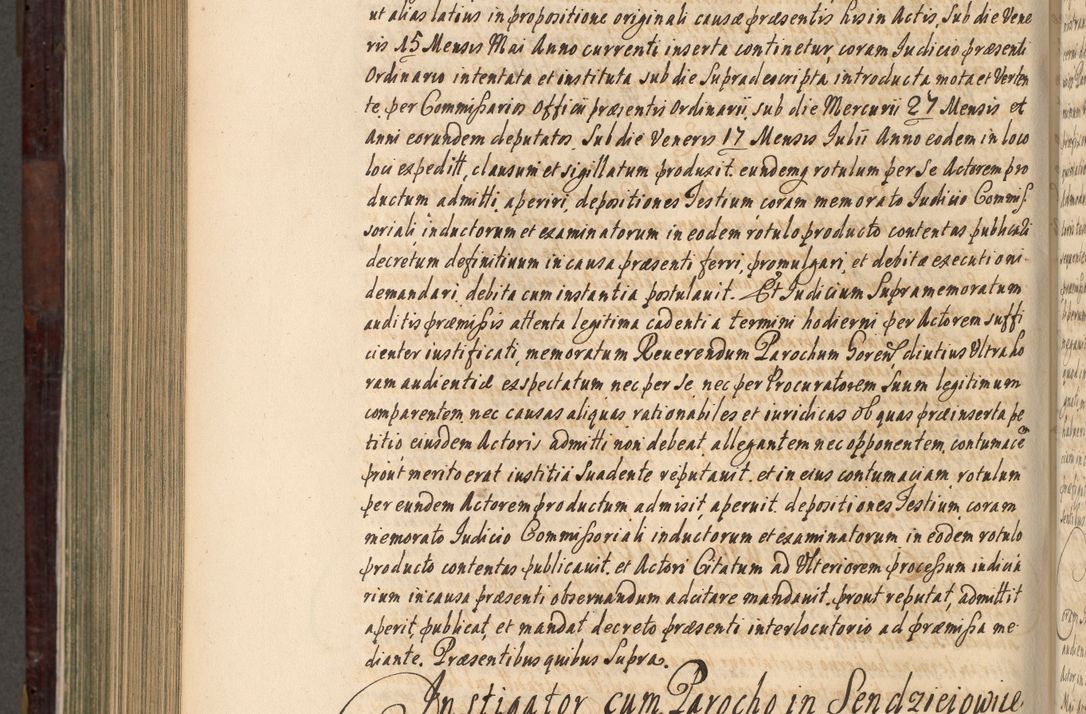 ut alias latius in propositione originali causæ præsentis his in Actis, Sub die Vene
ris 15 Mensis Mai Anno currenti inserta continetur, coram Iudicio præsenti
Ordinario intentata et instituta sub die Supradescripta, introducta mota et Verten
te per Commissarios Officii præsentis Ordinarii, sub die Mercurii 27 Mensis et
Anni eorundem deputatos, Sub die Veneris 17 Mensis Iulii Anno eodem in loco
loci expeditt, clausum et sigillatum produxit. eundemq rotulum per se Actorem pro
ductum admitti, aperiri, depositiones Testium coram memorato Iudicio Commis
soriali inductorum et examinatorum in eodem rotulo producto contentas publicati
decretum definitiuum in causa præsenti ferri, promulgari, et debitæ executioni
demandari, debita cum instantia postulauit. Et Iudicium Supramemoratum
auditis præmissis attenta legitima cadentia termini hodierni per Actorem suffi
cienter iustificati, memoratum Reuerendum Parochum Goren̄ diutius Vltra ho
ram audientiæ exspectatum nec per se, nec per Procuratorem Suum legitimum
comparentem nec causas aliquas rationabiles et iuridicas ob quas præinserta pe
titio eiusdem Actoris admitti non debeat, allegantem nec opponentem, contumacē
prout merito erat iustitia Suadente reputauit. et in eius contumaciam rotulum
per eundem Actorem productum admisit, aperuit. depositiones Testium coram
memorato Iudicio Commissoriali inductorum et examinatorum in eodem rotulo
producto contentas publicauit. et Actori Citatum ad Vlteriorem processum iudicia
rium in causa præsenti obseruandum adcitare mandauit. prout reputat, admittit
aperit, publicat, et mandat decreto præsenti interlocutorio ad præmissa me
diante. Præsentibus quibus Supra.
Instigator cum Parocho in Sendzieiowice